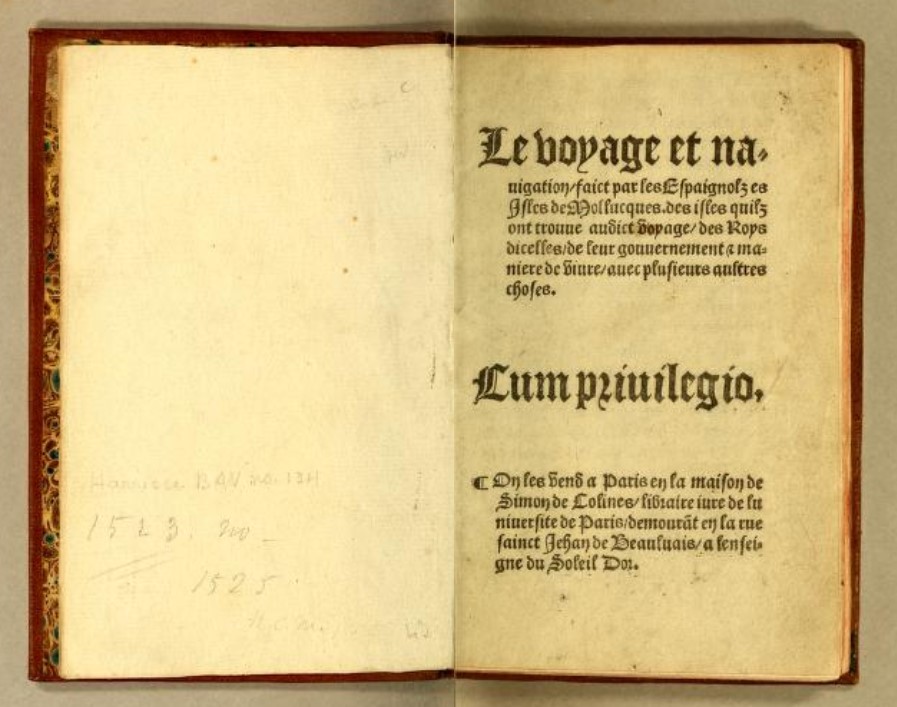 Harrisse BAV no. 134
1523. no
1525
Le voyage et na-
uigation/faict par les Espaignolz es
Isles de Mollucques.des isles quilz
ont trouue audict voyage/des Roys
dicelles/de leur gouuernement & ma-
niere de viure/auec plusieurs aultres
choses.
Cum priuilegio.
¶ On les vend a Paris en la maison de
Simon de Colines/libraire iure de lu
niuersite de Paris/demourãt en la rue
sainct Jehan de Beauluais/a lensei-
gne du Soleil Dor.